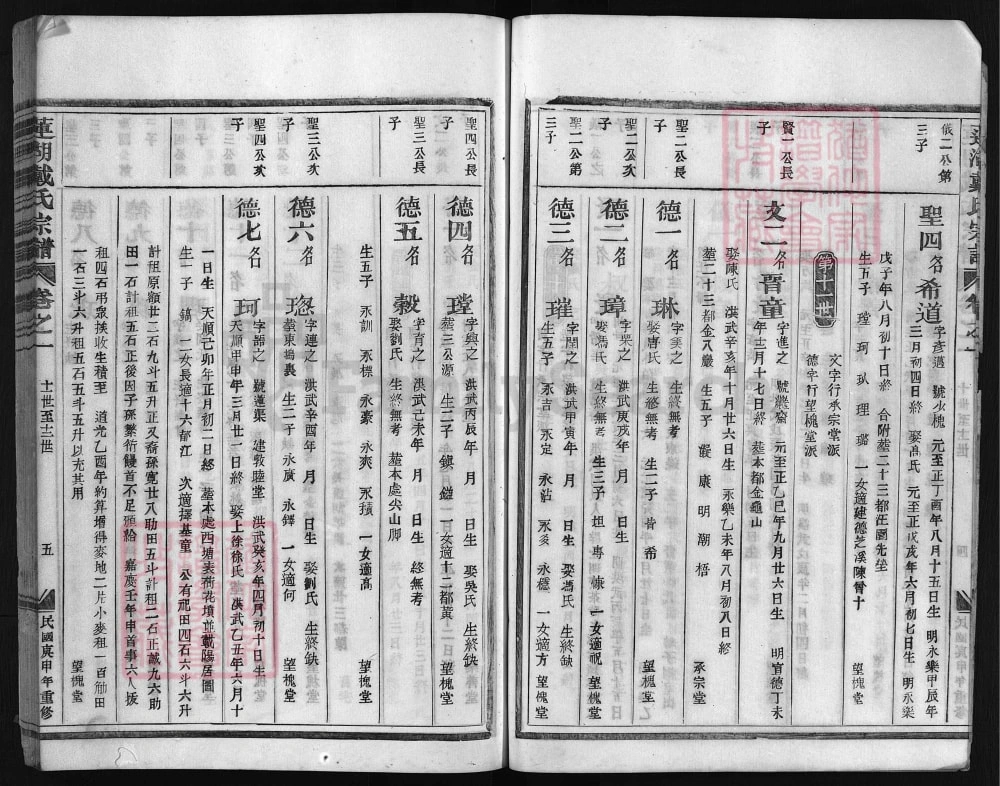 儀二公第
三子
聖四 名 希道
字彥邁 號少槐 元至正丁酉年八月十五日生 明永樂甲辰年
三月初四日終 娶馮氏 元至正戊戌年六月初七日生 明永樂
戊子年八月初十日終 合附塟二十三都汪園先塋
生五子 瑝 玳 玖 琯 璐 一女適建德芝溪陳晉十
第十二世
文字行承宗堂派
德字行望槐堂派
賢一公長
子
文二 名 晋童
字進之 號叢齋 元至正乙巳年九月廿六日生 明宣德丁未
年十二月十七日終 塟本都金龜山
娶陳氏 洪武辛亥年十月廿六日生 永樂乙未年八月初八日終
塟二十三都金八嚴 生五子 凝 康 明 潮 梧
承宗堂
聖一公長
子
德一 名 琳
字奚之 生終無考
娶唐氏 生終無考 生二子 昔 希
望槐堂
聖二公次
子
德二 名 璋
字杲之 洪武庚戌年 月 日生
娶馮氏 生終無考 生三子 坦 專 慷 一女適祝
望槐堂
聖二公第
三子
德三 名 璀
字閏之 洪武甲寅年 月 日生 娶馮氏 生終缺
生五子 永吉 永定 永沾 永爻 永穩 一女適方
望槐堂
聖四公長
子
德四 名 瑝
字興之 洪武丙辰年 月 日生 娶吳氏 生終缺
塟三公源 生二子 鎮 鐩 一女適十二都黃
望槐堂
聖三公長
子
德五 名 毅
字育之 洪武己未年 月 日生 終無考
娶劉氏 生終無考 塟本處尖山脚
生五子 永訓 永標 永豪 永爽 永積 一女適高
望槐堂
聖三公次
子
德六 名 琁
字運之 洪武辛酉年 月 日生 娶劉氏 生終缺
塟東塢裏 生二子 永廣 永鐸 一女適何
望槐堂
聖四公次
子
德七 名 珂
字諳之 號蓮渠 建敦睦堂 洪武癸亥年四月初十日生
天順甲申年三月廿一日終 娶上徐徐氏 洪武乙丑年六月十
一日生 天順己卯年正月初二日終 塟本處西塘表荷花墳並載陽居圖
生一子 鎬 二女長適十六都江 次適擇基童 公有祀田四石六斗六升
計租原額廿二石九斗五升正又裔孫寬廿八助田五斗計租二石正誠九六助
田一石計租五石正後因子孫繁衍饅首不足頒給 嘉慶壬年申首事六人扳
租四石弔衆挨收生積至 道光乙酉年約算增得麥地二片小麥租一百觔田
一石三斗六升租五石五斗五升以充其用
望槐堂
蓮湖戴氏宗譜
卷之一
十一世至十二世
五
民國庚申年重修